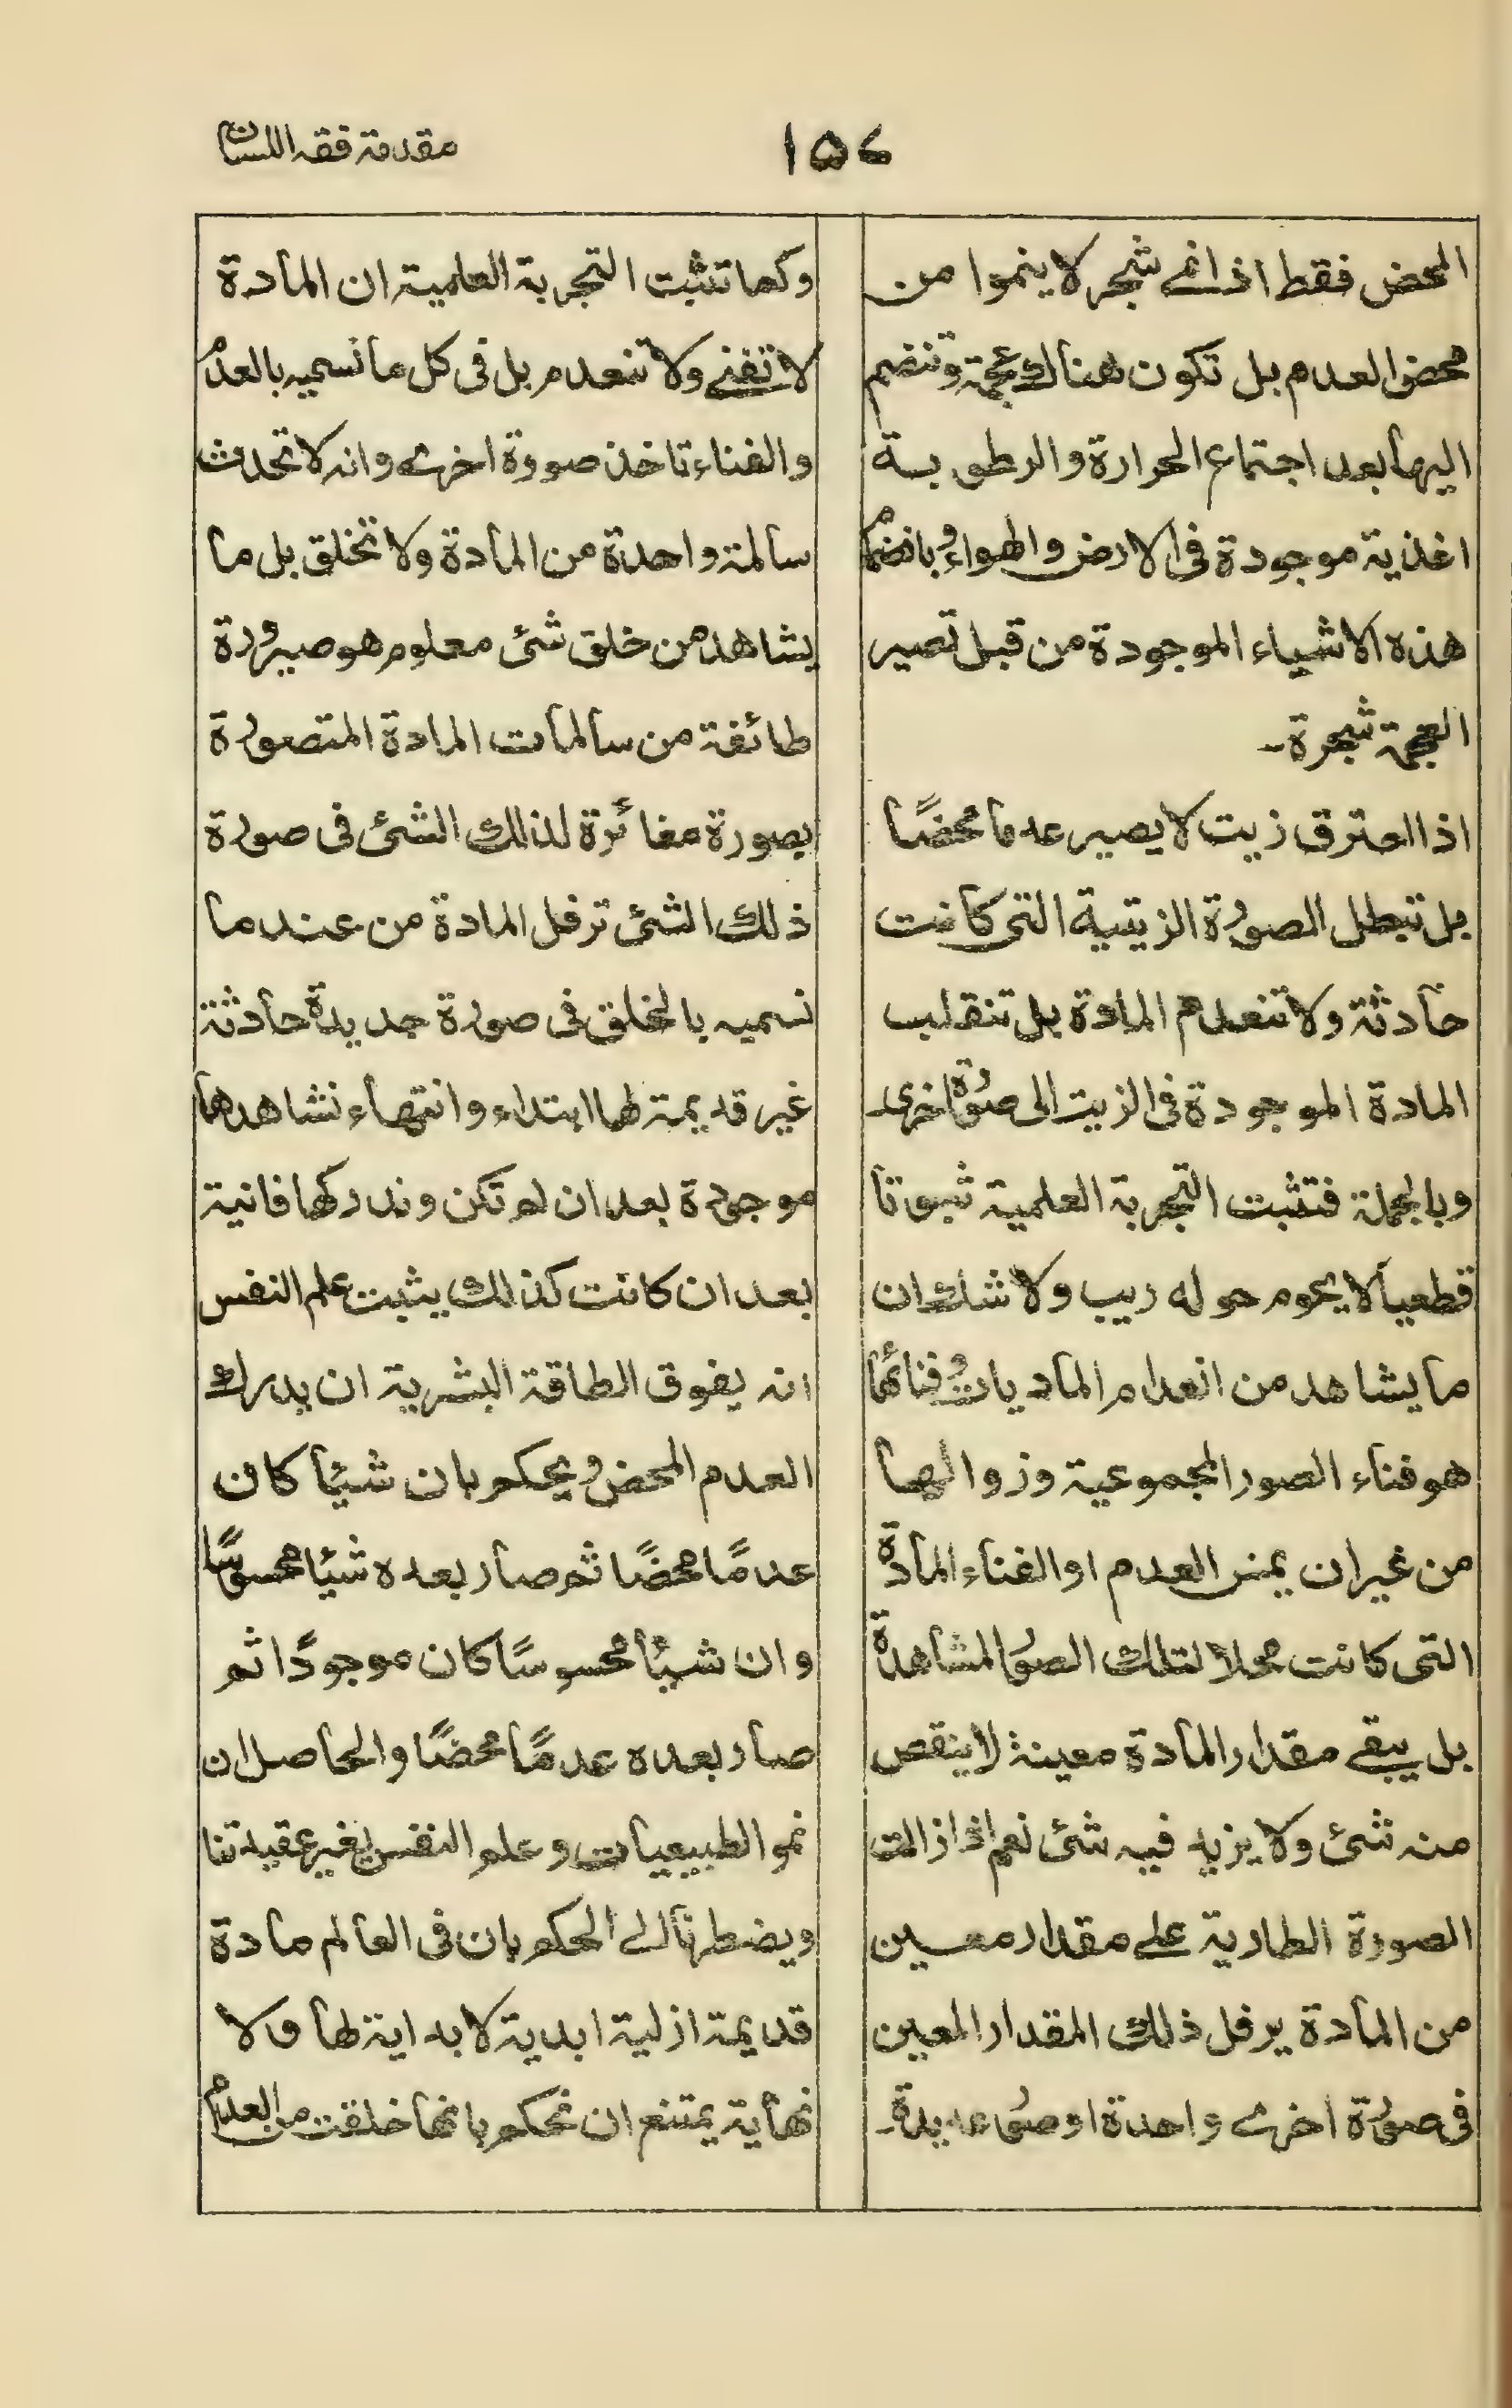 مقدمة فقه اللسان
١٥٤
المحض فقط اذ انى شجر لا ينموا من
محض العدم بل تكون هناك عجمة وتنضم
اليها بعد اجتماع الحرارة والرطوبة
اغذية موجودة فى الارض والهواء وبانضمام
هذه الاشياء الموجودة من قبل تصير
العجمة شجرة۔
اذا احترق زيت لا يصير عدما محضًا
بل تبطل الصورة الزيتية التى كانت
حادثة ولا تنعدم المادة بل تنقلب
المادة الموجودة فى الزيت الى صورة اخرى۔
وبالجملة فتثبت التجربة العلمية ثبوتا
قطعيا لا يحوم حوله ريب ولا شك ان
ما يشاهد من انعدام الماديات وفنائها
هو فناء الصور المجموعية وزوالها
من غير ان يمس العدم او الفناء المادة
التى كانت محلا لتلك الصور المشاهدة
بل يبقى مقدار المادة معينة لا ينقص
منه شئ ولا يزيد فيه شئ نعم اذا زالت
الصورة الطارية على مقدار معين
من المادة يرفل ذلك المقدار المعين
فى صورة اخرى واحدة او صور عديدة۔
وكما تثبت التجربة العلمية ان المادة
لا تفنى ولا تنعدم بل فى كل ما نسميه بالعدم
والفناء تاخذ صورة اخرى وانه لا تحدث
سالمة واحدة من المادة ولا تخلق بل ما
يشاهد من خلق شئ معلوم هو صيرورة
طائفة من سالمات المادة المتصورة
بصورة مغائرة لذلك الشئ فى صورة
ذلك الشئ ترفل المادة من عند ما
نسميه بالخلق فى صورة جديدة حادثة
غير قديمة لها ابتداء وانتهاء نشاهدها
موجودة بعد ان لم تكن وندركها فانية
بعد ان كانت كذلك يثبت علم النفس
انه يفوق الطاقة البشرية ان يدرك
العدم المحض ويحكم بان شيئا كان
عدمًا محضًا ثم صار بعده شيئا محسوسًا
وان شيئا محسوسًا كان موجودًا ثم
صار بعده عدمًا محضًا والحاصل ان
نمو الطبيعيات وعلم النفس يغير عقيدتنا
ويضطرنا الى الحكم بان فى العالم مادة
قديمة ازلية ابدية لا بداية لها ولا
نهاية يمتنع ان نحكم بانها خلقت من العدم